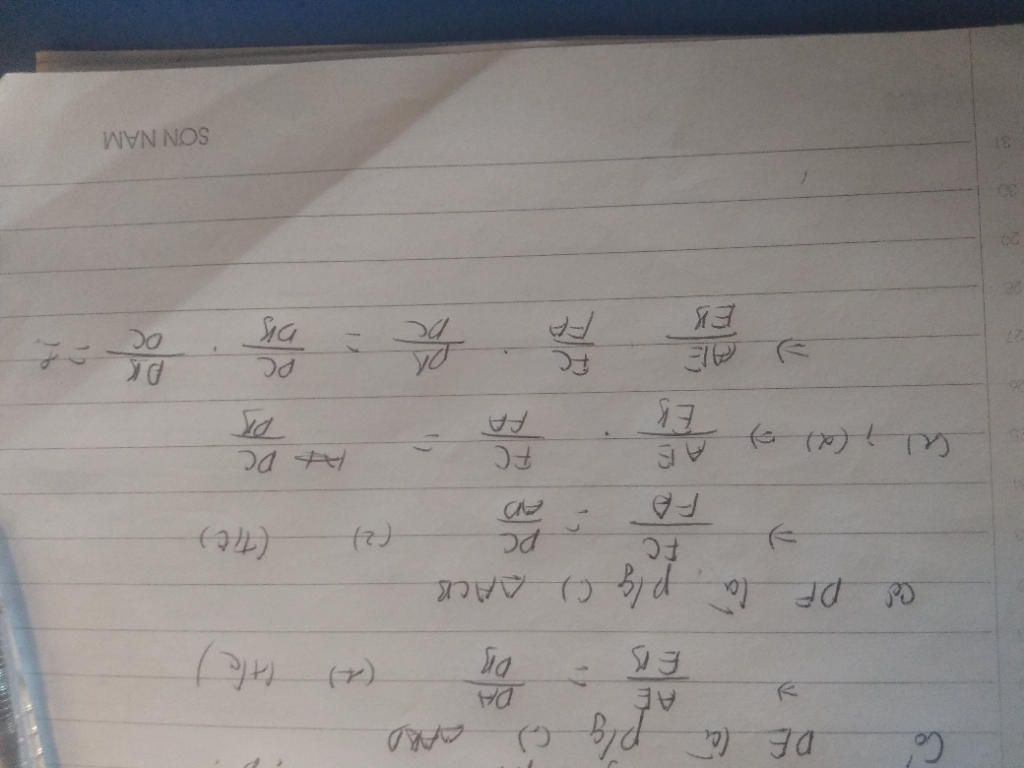 Có DE là p/g (.) △ABD
⇒ AE/EB = DA/DB (1) (t/c)
Có DF là p/g (.) △ACB
⇒ FC/FA = DC/AD (2) (T/C)
(1) ; (2) ⇒ AE/EB . FC/FA = DC/DB
⇒ AE/EB . FC/FA . DB/DC = DC/DB . DB/DC = 1
SƠN NAM